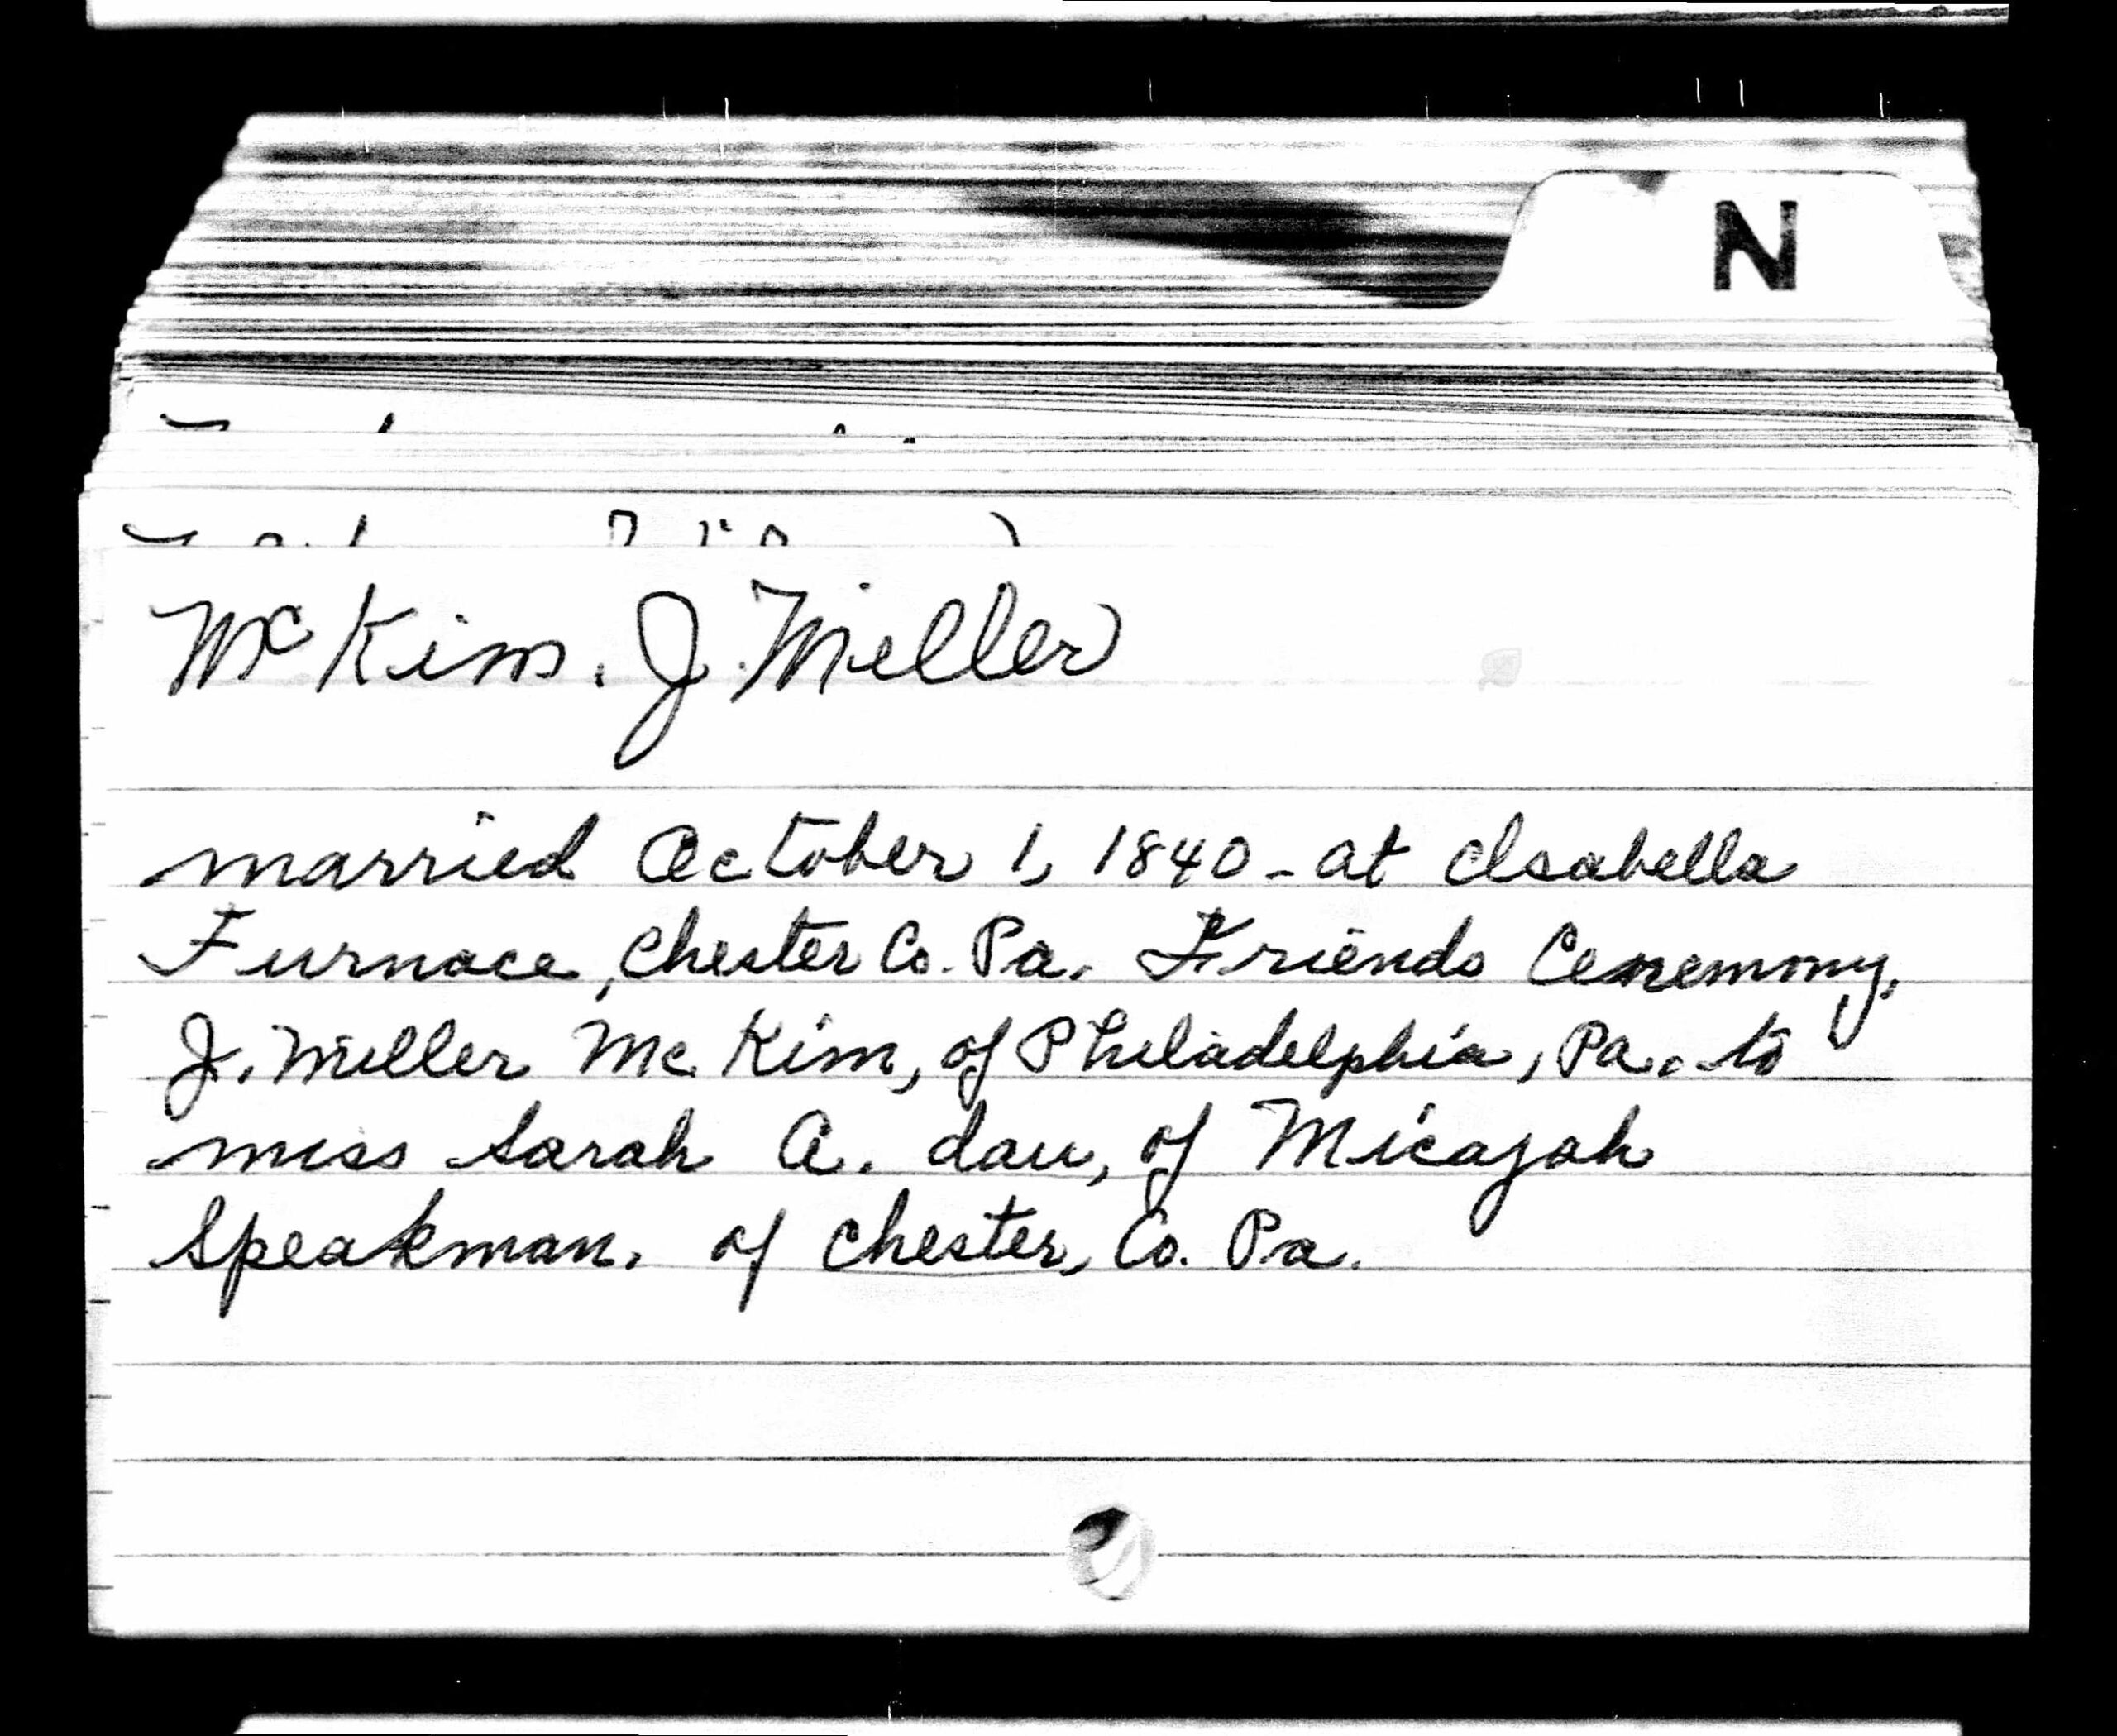 N
McKim. J. Miller
married October 1, 1840 - at Isabella
Furnace, Chester Co. Pa. Friends Ceremony,
J. Miller Mc Kim, of Philadelphia, Pa. to
miss Sarah A. dau, of Micajah
Speakman. of Chester, Co. Pa.